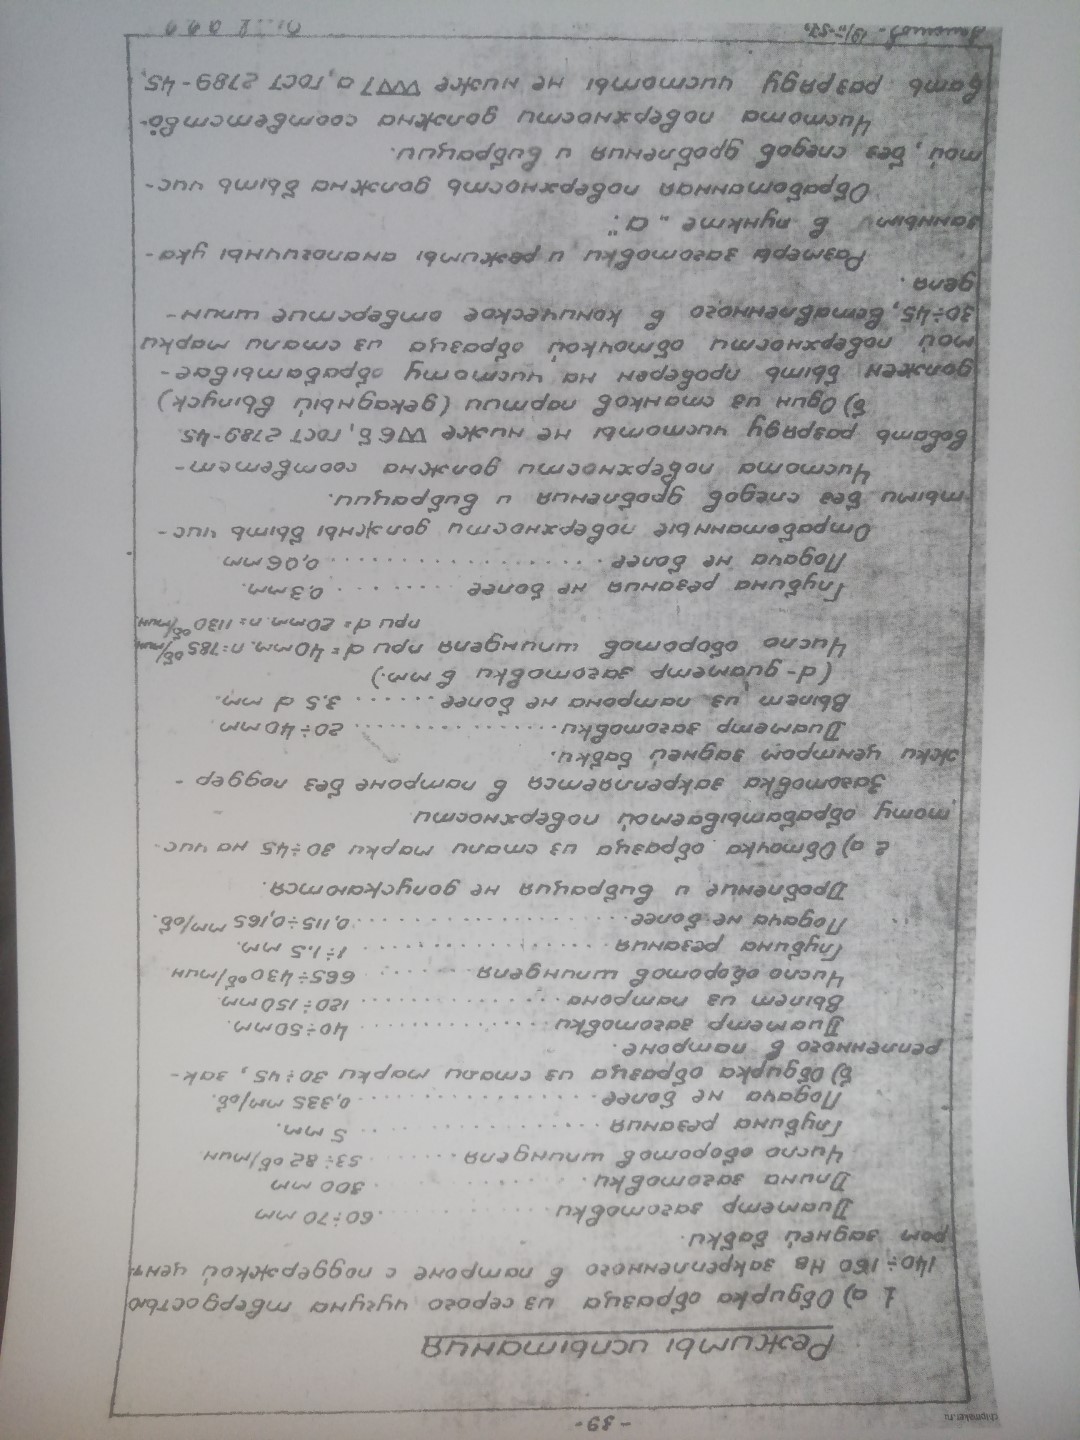 -39-
chipmaker.ru
Режимы испытания
1 а) Обдирка образца из серого чугуна твердостью
140÷160 Нв закрепленного в патроне с поддержкой цент-
ром задней бабки.
Диаметр заготовки ............ 60÷70 mm
Длина заготовки ............ 300 mm
Число оборотов шпинделя ....... 53÷82 об/мин
Глубина резания ............ 5 mm.
Подача не более ............ 0,335 mm/об.
б) Обдирка образца из стали марки 30÷45, зак-
репленного в патроне.
Диаметр заготовки ............ 40÷50 mm.
Вылет из патрона ............ 120÷150 mm.
Число оборотов шпинделя ....... 665÷430 об/мин
Глубина резания ............ 1÷1.5 mm.
Подача не более ............ 0,115÷0,165 mm/об.
Дробление и вибрация не допускаются.
2 а) Обточка образца из стали марки 30÷45 на чис-
тоту обрабатываемой поверхности
Заготовка закрепляется в патроне без поддер-
жки центром задней бабки.
Диаметр заготовки ............ 20÷40 mm
Вылет из патрона не более ....... 3.5 d mm.
(d-диаметр заготовки в mm.)
Число оборотов шпинделя при d=40mm. n=785 об/мин
при d=20mm. n=1130 об/мин
Глубина резания не более ........ 0.3mm.
Подача не более ............ 0,06mm
Отработанные поверхности должны быть чис-
тыми без следов дробления и вибрации.
Чистота поверхности должна соответст-
вовать разряду чистоты не ниже ∇∇6б, гост 2789-45.
б) Один из станков партии (декадный выпуск)
должен быть проверен на чистоту обрабатывае-
мой поверхности обточкой образца из стали марки
30÷45, вставленного в коническое отверстие шпин-
деля.
Размеры заготовки и режимы аналогичны ука-
занным в пункте „а".
Обработанная поверхность должна быть чис-
той, без следов дробления и вибрации.
Чистота поверхности должна соответство-
вать разряду чистоты не ниже ∇∇∇7а, гост 2789-45.